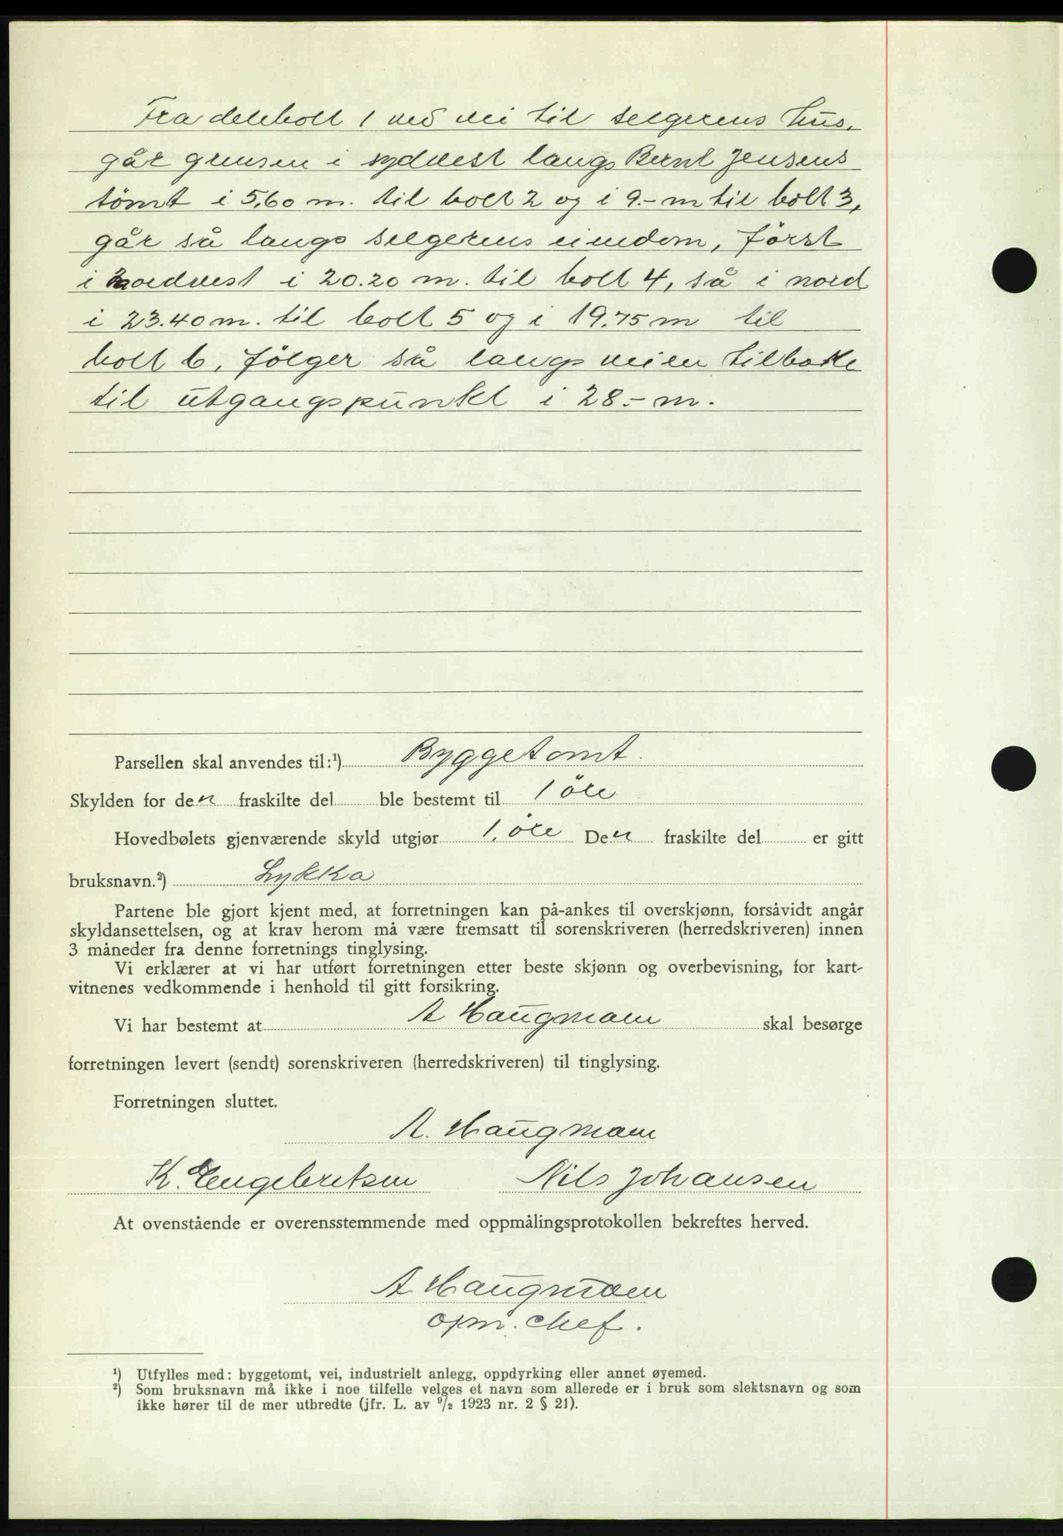 Fra delebolt 1 ved vei til selgerens hus.
går grensen i sydvest langs Bernt Jensens
tömt i 5,60 m. til bolt 2 og i 9.- m til bolt 3,
går så langs selgerens eiendom, först
i nordvest i 20.20 m. til bolt 4, så i nord
i 23.40 m. til bolt 5 og i 19.75 m til
bolt 6, fölger så langs veien tilbake
til utgangspunktet i 28.- m.
Parsellen skal anvendes til:¹) Byggetomt.
Skylden for den fraskilte del ble bestemt til 1 öre
Hovedbølets gjenværende skyld utgjør 1, öre Den fraskilte del er gitt
bruksnavn.²) Lykka
Partene ble gjort kjent med, at forretningen kan på-ankes til overskjønn, forsåvidt angår
skyldansettelsen, og at krav herom må være fremsatt til sorenskriveren (herredskriveren) innen
3 måneder fra denne forretnings tinglysing.
Vi erklærer at vi har utført forretningen etter beste skjønn og overbevisning, for kart-
vitnenes vedkommende i henhold til gitt forsikring.
Vi har bestemt at A Haugmoen skal besørge
forretningen levert (sendt) sorenskriveren (herredskriveren) til tinglysing.
Forretningen sluttet.
A. Haugmoen
K. Engebretsen Nils Johansen
At ovenstående er overensstemmende med oppmålingsprotokollen bekreftes herved.
A Haugmoen
opm. chef.
¹) Utfylles med: byggetomt, vei, industrielt anlegg, oppdyrking eller annet øyemed.
²) Som bruksnavn må ikke i noe tilfelle velges et navn som allerede er i bruk som slektsnavn og som
ikke hører til de mer utbredte (jfr. L. av 9/2 1923 nr. 2 § 21).